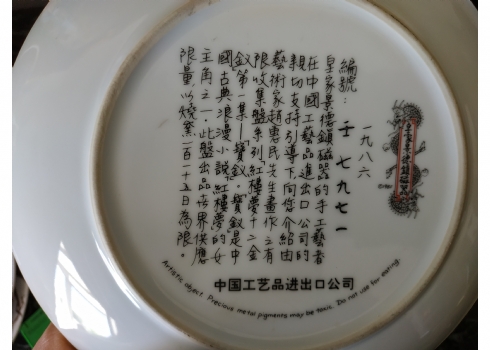 皇家景德鎮磁器
一九八六
編號：壬七九七一
皇家景德鎮磁器的手工藝者
在中國工藝品進出口公司的
親切支持引導下向您介紹由
藝術家趙惠民先生畫作之有
限收集盤系列紅樓夢十二金
釵第一集—寶釵。寶釵是中
國古典浪漫小說紅樓夢的女
主角之一。此盤出品世界供應
限量，以燒窯一百一十五日為限。
中国工艺品进出口公司
Artistic object. Precious metal pigments may be toxic. Do not use for eating.